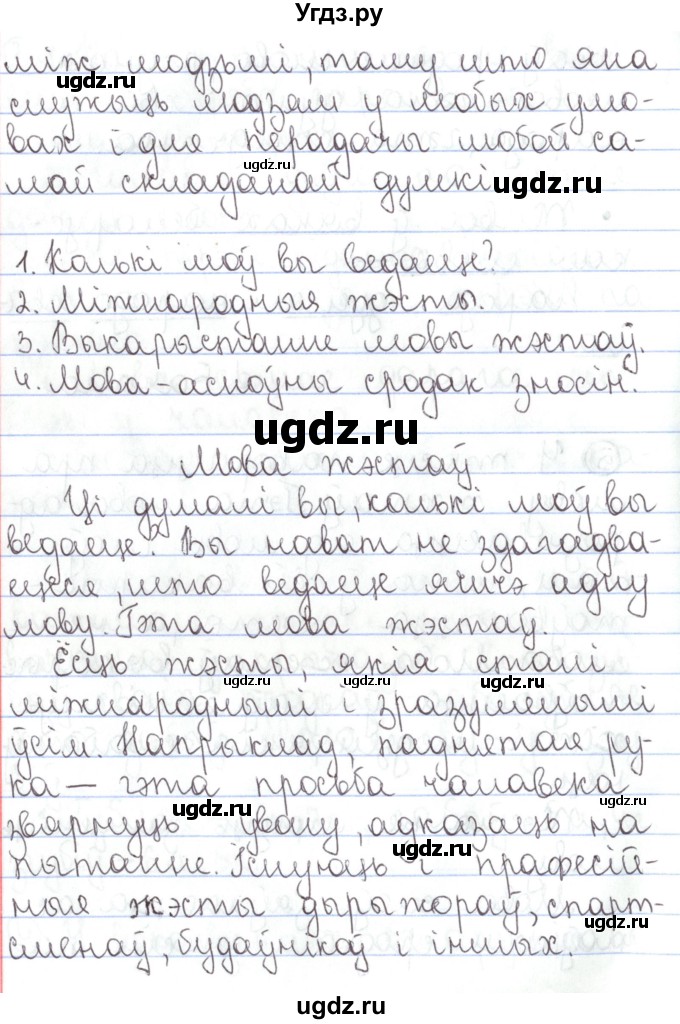 Угдз.ру
між людзьмі, таму што яна
служыць людзям у любых умо-
вах і для перадачы любой са-
май складанай думкі
ugdz.ru
1. Колькі моў вы ведаеце?
2. Міжнародныя жэсты.
3. Выкарыстанне мовы жэстаў.
4. Мова - асноўны сродак зносін.
ugdz.ru
Мова жэстаў
Ці думалі вы, колькі моў вы
ведаеце? Вы нават не здагадва-
ецеся, што ведаеце яшчэ адну
мову. Гэта мова жэстаў.
Ёсць жэсты, якія сталі
міжнароднымі і зразумелымі
ўсім. Напрыклад, паднятая ру-
ка — гэта просьба чалавека
звярнуць увагу, адказаць на
пытанне. Існуюць і прафесій-
ныя жэсты дырыжораў, спарт-
сменаў, будаўнікоў і іншых.
ugdz.ru